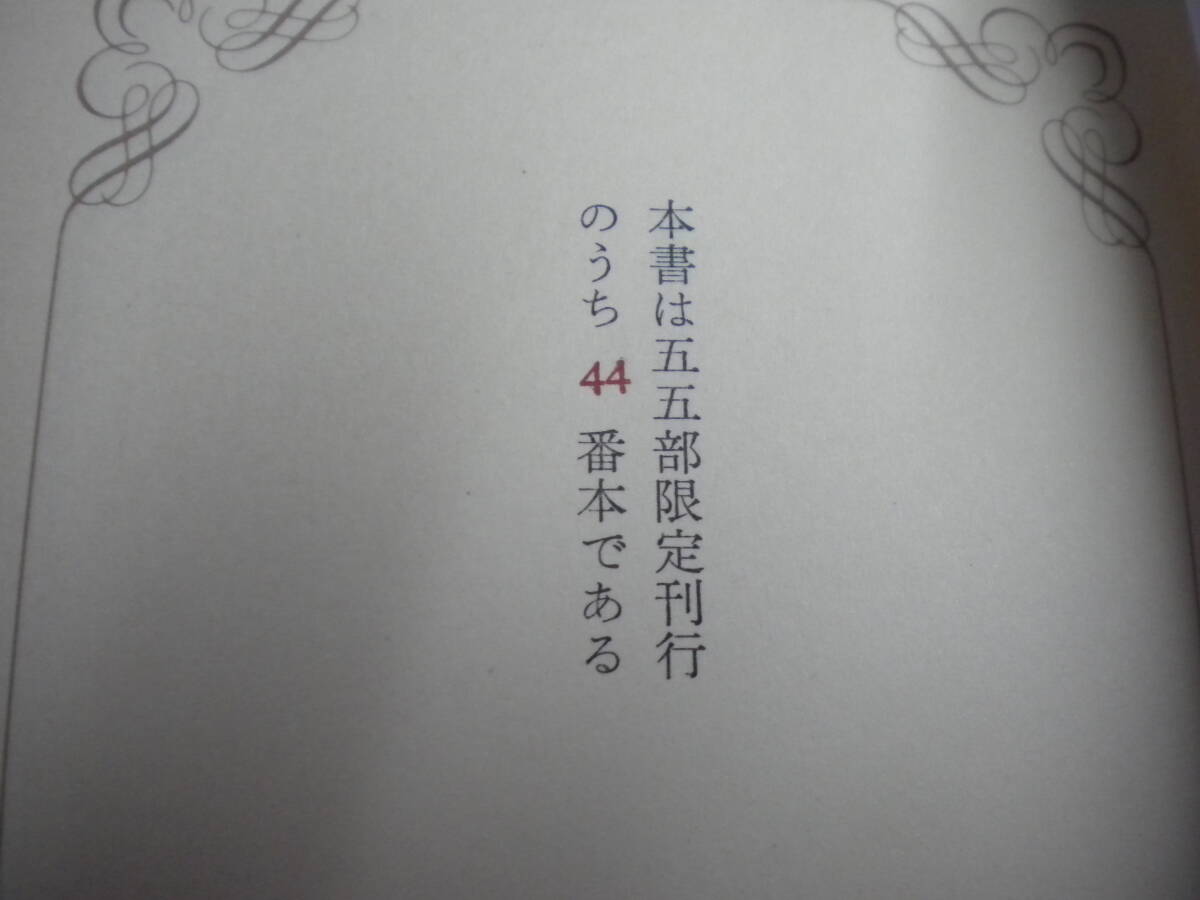 本書は五五部限定刊行
のうち 44 番本である